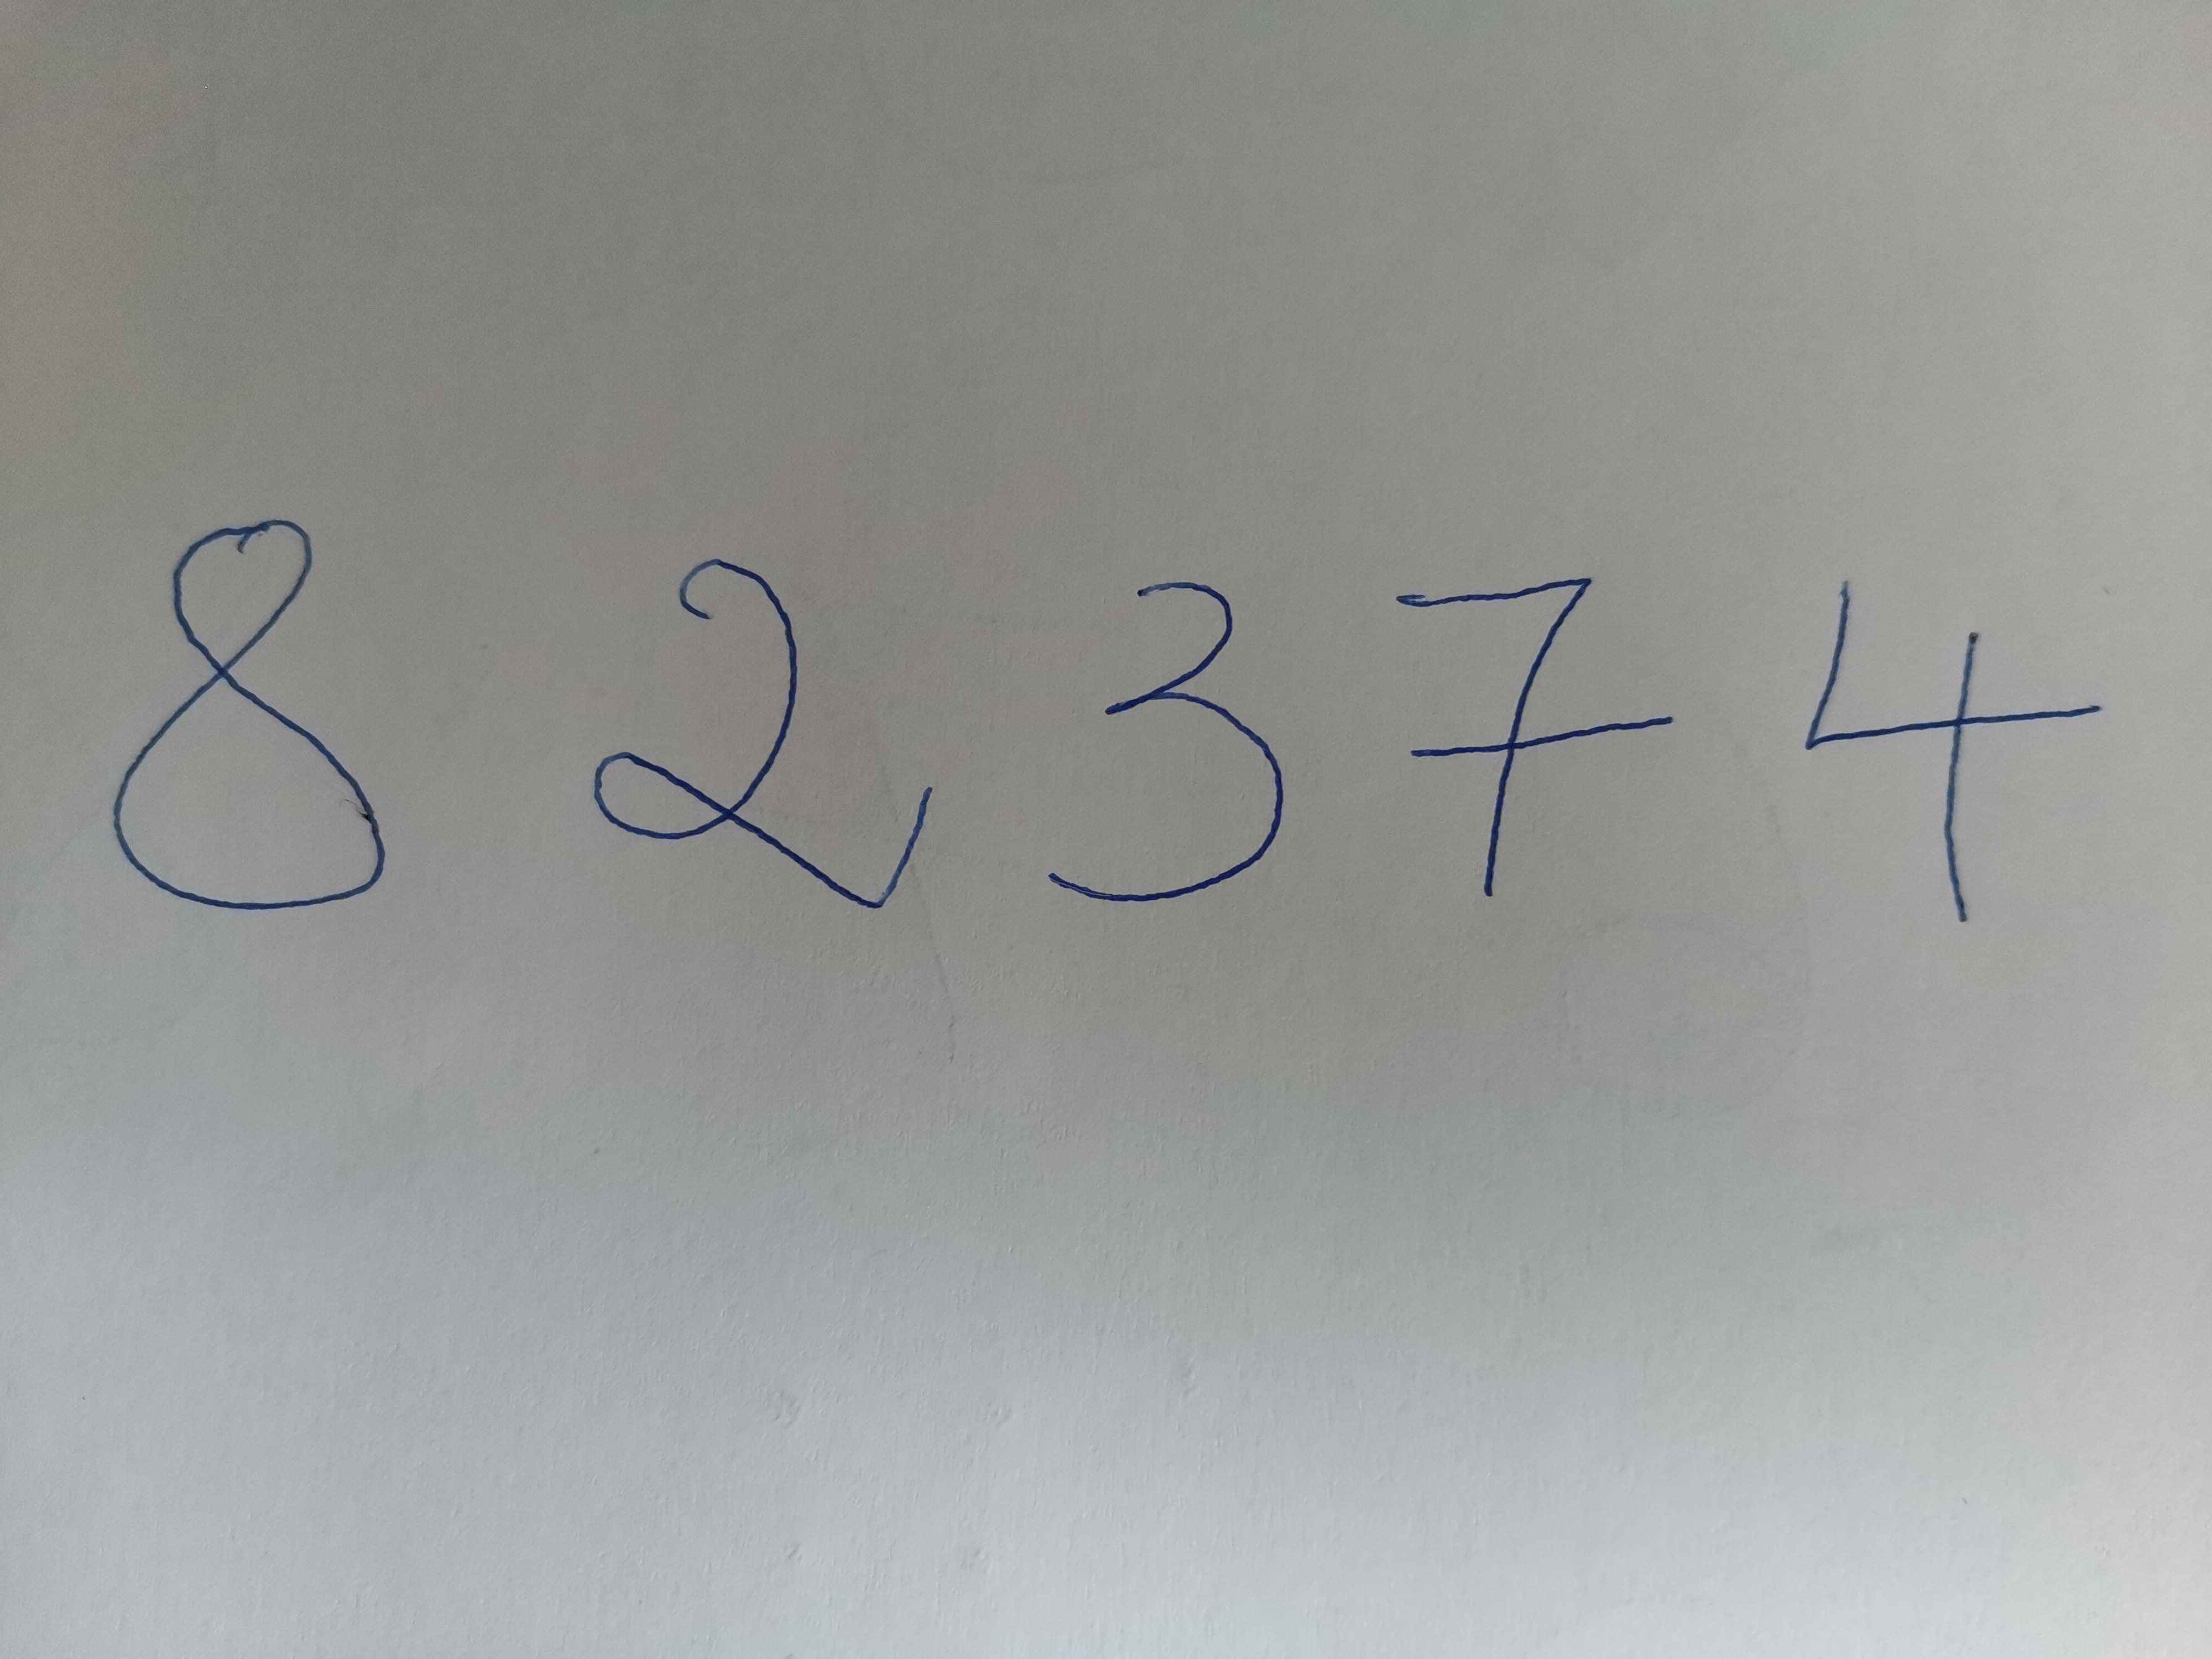 8 2 3 7 4